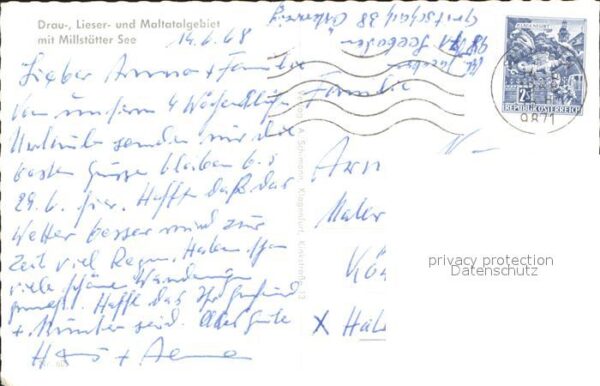 Drau-, Lieser- und Maltatalgebiet
mit Millstätter See
14.6.68
Lieber + Familie
Von unserem 4 Wöchentlichen
Urlaub senden wir die
besten Grüsse bleiben bis
29.6. hier. Hoffe daß das
Wetter besser wird zur
Zeit viel Regen. Haben schon
viele schöne Wanderungen
gemacht. Hoffe das Ihr gesund
+ munter seid. Alles gute
Hans +
Verlag A. Schimann, Klagenfurt
38
9871 Seeboden
Familie
KLAGENFURT
2S
REPUBLIK ÖSTERREICH
9871
Arn
Maler
Kön
X Hal
privacy protection
Datenschutz